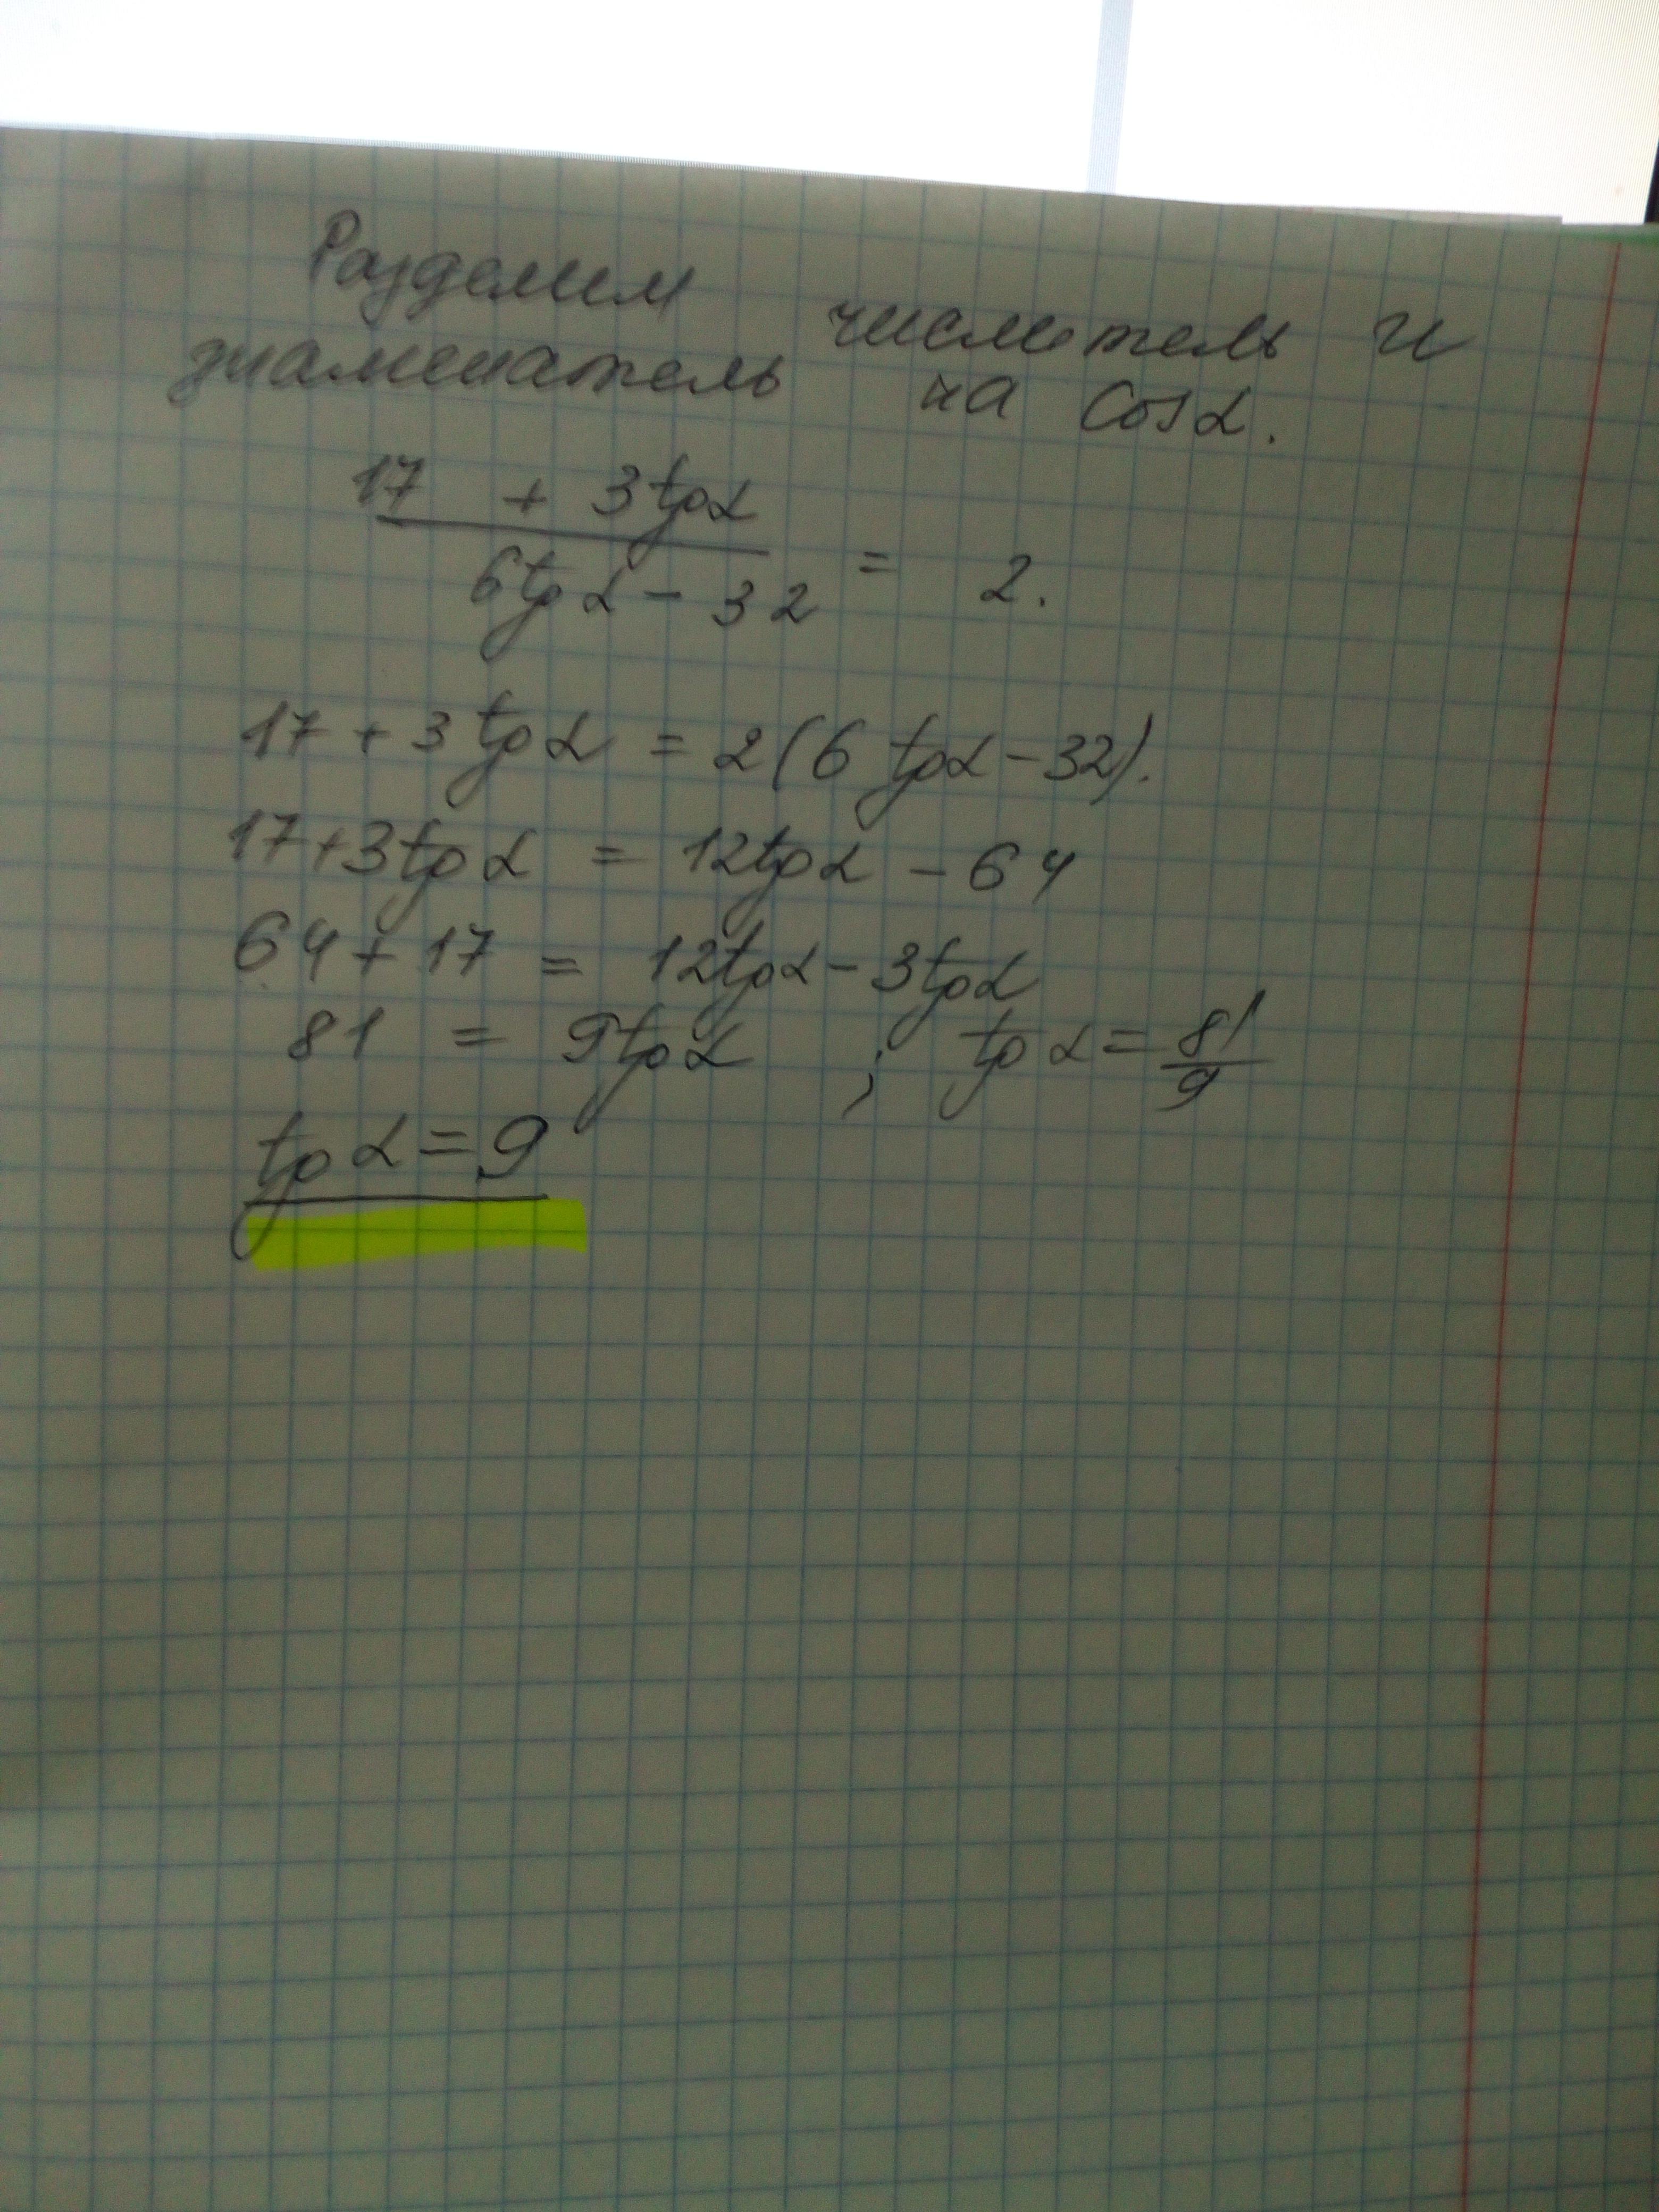 Разделим числитель и
знаменатель на cosα.
17 + 3tgα
6tgα - 32 = 2.
17 + 3tgα = 2(6tgα - 32).
17+3tgα = 12tgα - 64
64 + 17 = 12tgα - 3tgα
81 = 9tgα ; tgα = 81/9
tgα = 9